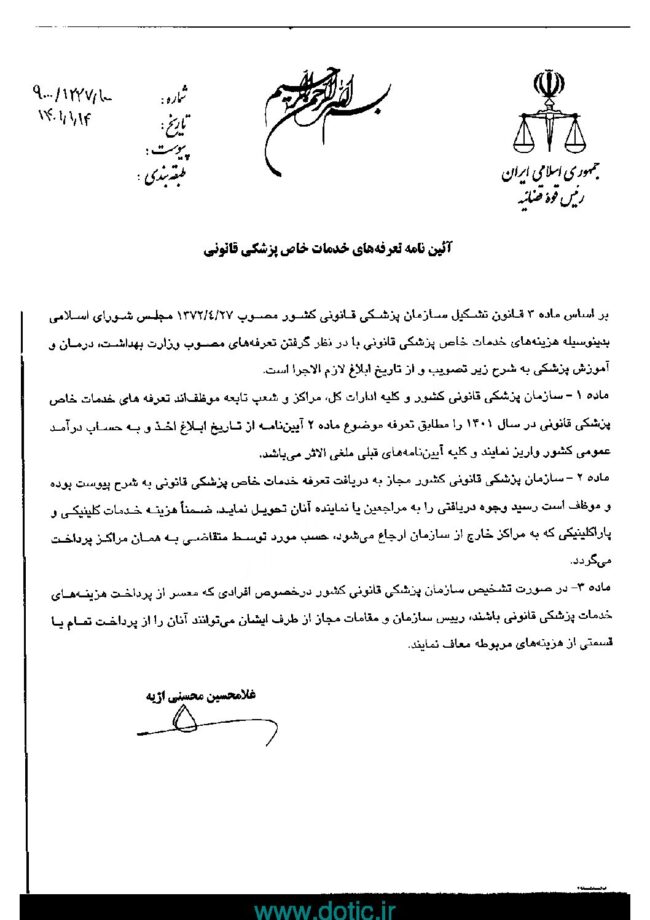 بسم الله الرحمن الرحیم
جمهوری اسلامی ایران
رئیس قوهٔ قضائیه
شماره: ۹۰۰۰/۱۲۲۷/۱۰۰
تاریخ: ۱۴۰۱/۱/۱۴
پیوست:
طبقه‌بندی:
آئین نامه تعرفه‌های خدمات خاص پزشکی قانونی
بر اساس ماده ۳ قانون تشکیل سازمان پزشکی قانونی کشور مصوب ۱۳۷۲/٤/۲۷ مجلس شورای اسلامی
بدینوسیله هزینه‌های خدمات خاص پزشکی قانونی با در نظر گرفتن تعرفه‌های مصوب وزارت بهداشت، درمان و
آموزش پزشکی به شرح زیر تصویب و از تاریخ ابلاغ لازم الاجرا است.
ماده ۱ - سازمان پزشکی قانونی کشور و کلیه ادارات کل، مراکز و شعب تابعه موظف‌اند تعرفه های خدمات خاص
پزشکی قانونی در سال ۱۴۰۱ را مطابق تعرفه موضوع ماده ۲ آیین‌نامه از تاریخ ابلاغ اخذ و به حساب درآمد
عمومی کشور واریز نمایند و کلیه آیین‌نامه‌های قبلی ملغی الاثر می‌باشد.
ماده ۲ - سازمان پزشکی قانونی کشور مجاز به دریافت تعرفه خدمات خاص پزشکی قانونی به شرح پیوست بوده
و موظف است رسید وجوه دریافتی را به مراجعین یا نماینده آنان تحویل نماید. ضمناً هزینه خدمات کلینیکی و
پاراکلینیکی که به مراکز خارج از سازمان ارجاع می‌شود، حسب مورد توسط متقاضی به همان مراکز پرداخت
می‌گردد.
ماده ۳- در صورت تشخیص سازمان پزشکی قانونی کشور درخصوص افرادی که معسر از پرداخت هزینه‌های
خدمات پزشکی قانونی باشند، رییس سازمان و مقامات مجاز از طرف ایشان می‌توانند آنان را از پرداخت تمام یا
قسمتی از هزینه‌های مربوطه معاف نمایند.
غلامحسین محسنی اژیه
www.dotic.ir